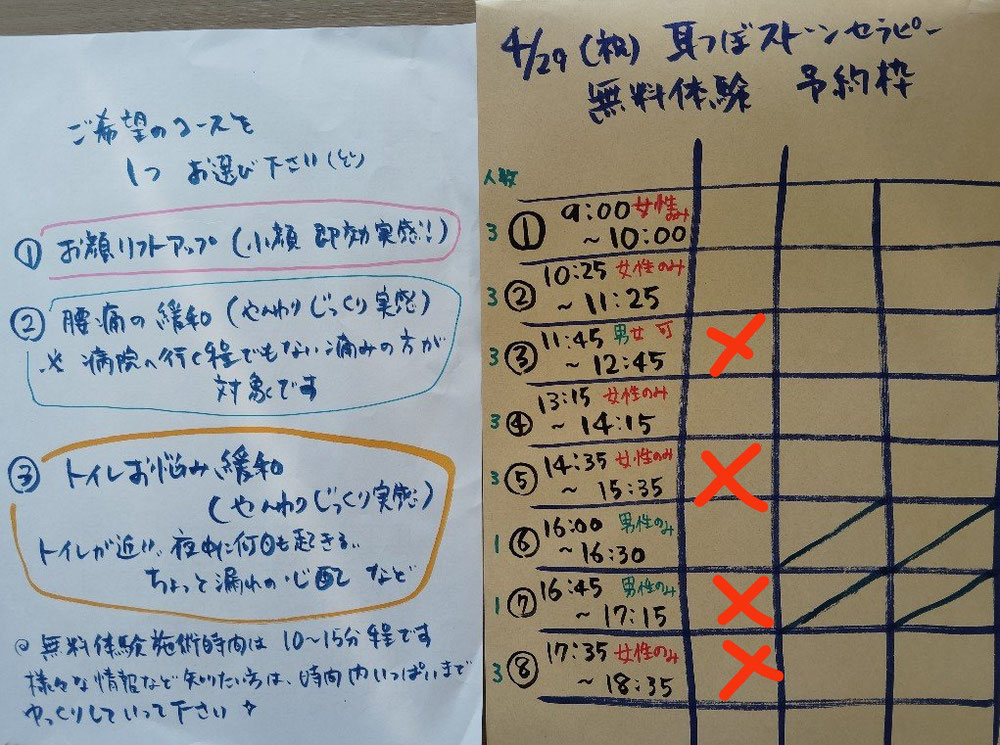 ご希望のコースを
1つ お選び下さい
① お顔リフトアップ (小顔 即効実感!!)
② 腰痛の緩和 (やんわりじっくり実感)
※ 病院へ行く程でもない痛みの方が
対象です
③ トイレお悩み緩和
(やんわりじっくり実感)
トイレが近い、夜中に何回も起きる、
ちょっと漏れの心配 など
◎ 無料体験施術時間は 10〜15分程です
様々な情報など知りたい方は、時間内いっぱいまで
ゆっくりしていって下さい
4/29 (祝) 耳つぼストーンセラピー
無料体験 予約枠
人数
3 ① 9:00 女性のみ
~ 10:00
3 ② 10:25 女性のみ
~ 11:25
3 ③ 11:45 男女 可
~ 12:45
3 ④ 13:15 女性のみ
~ 14:15
3 ⑤ 14:35 女性のみ
~ 15:35
1 ⑥ 16:00 男性のみ
~ 16:30
1 ⑦ 16:45 男性のみ
~ 17:15
3 ⑧ 17:35 女性のみ
~ 18:35